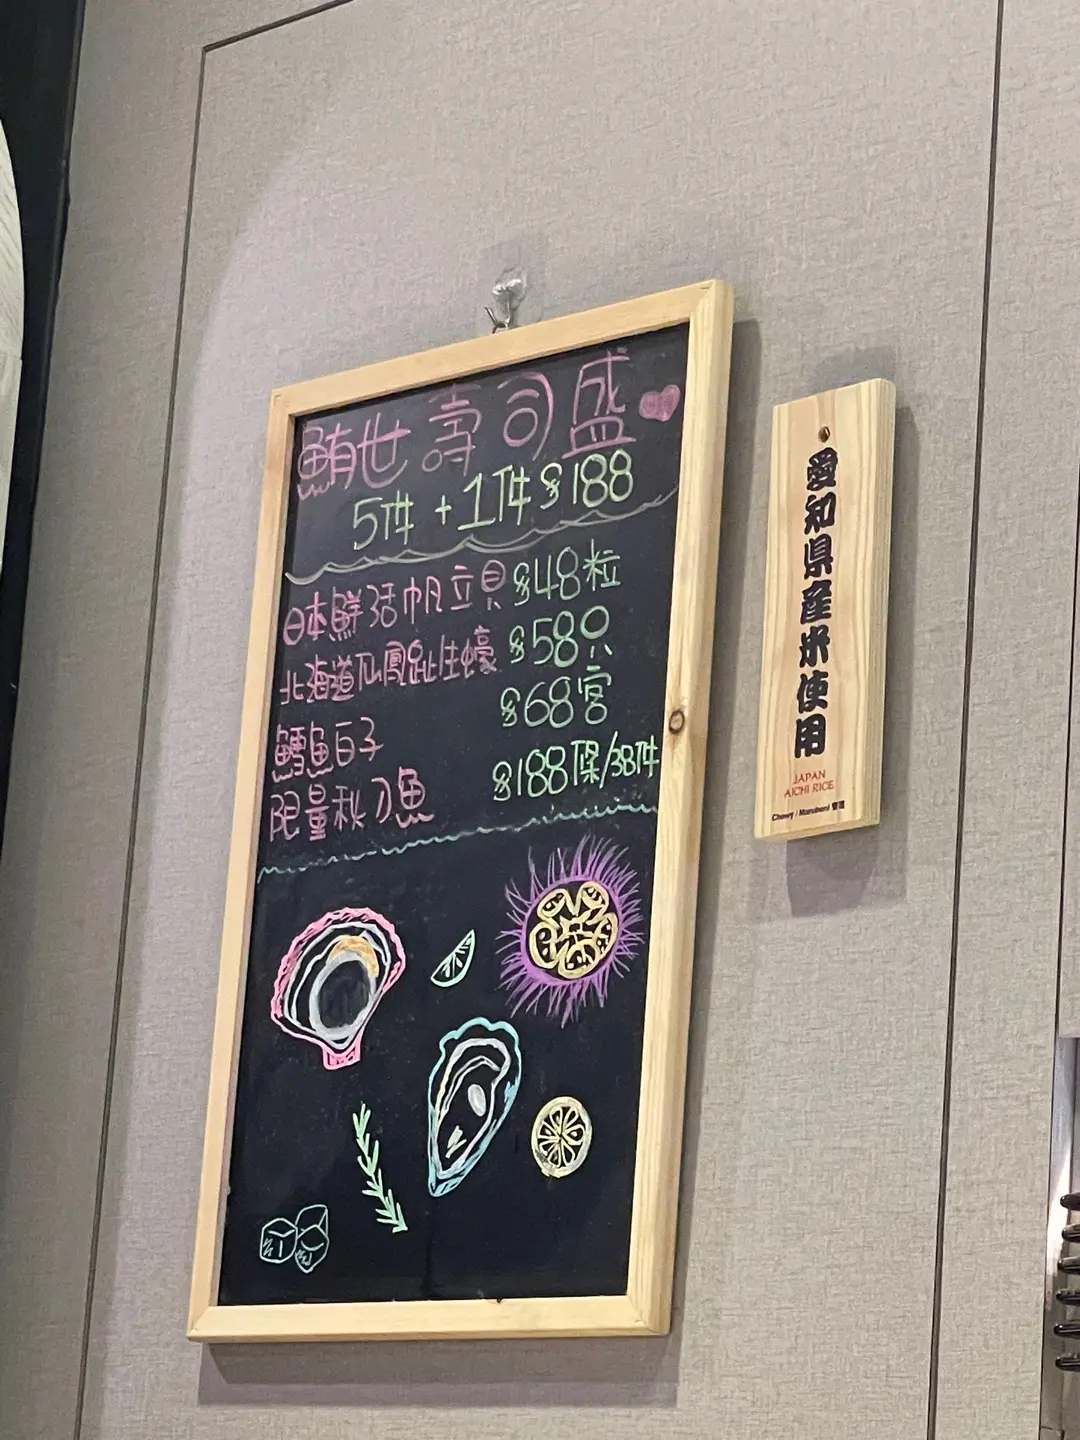 鮪世壽司盛
5件 + 1件 $188
日本鮮活帆立貝 $48粒
北海道仙鳳趾生蠔 $58只
鱈魚白子 $68客
限量秋刀魚 $188條/38件
愛知県産米使用
JAPAN
AICHI RICE
Chewy / Marubeni 管理